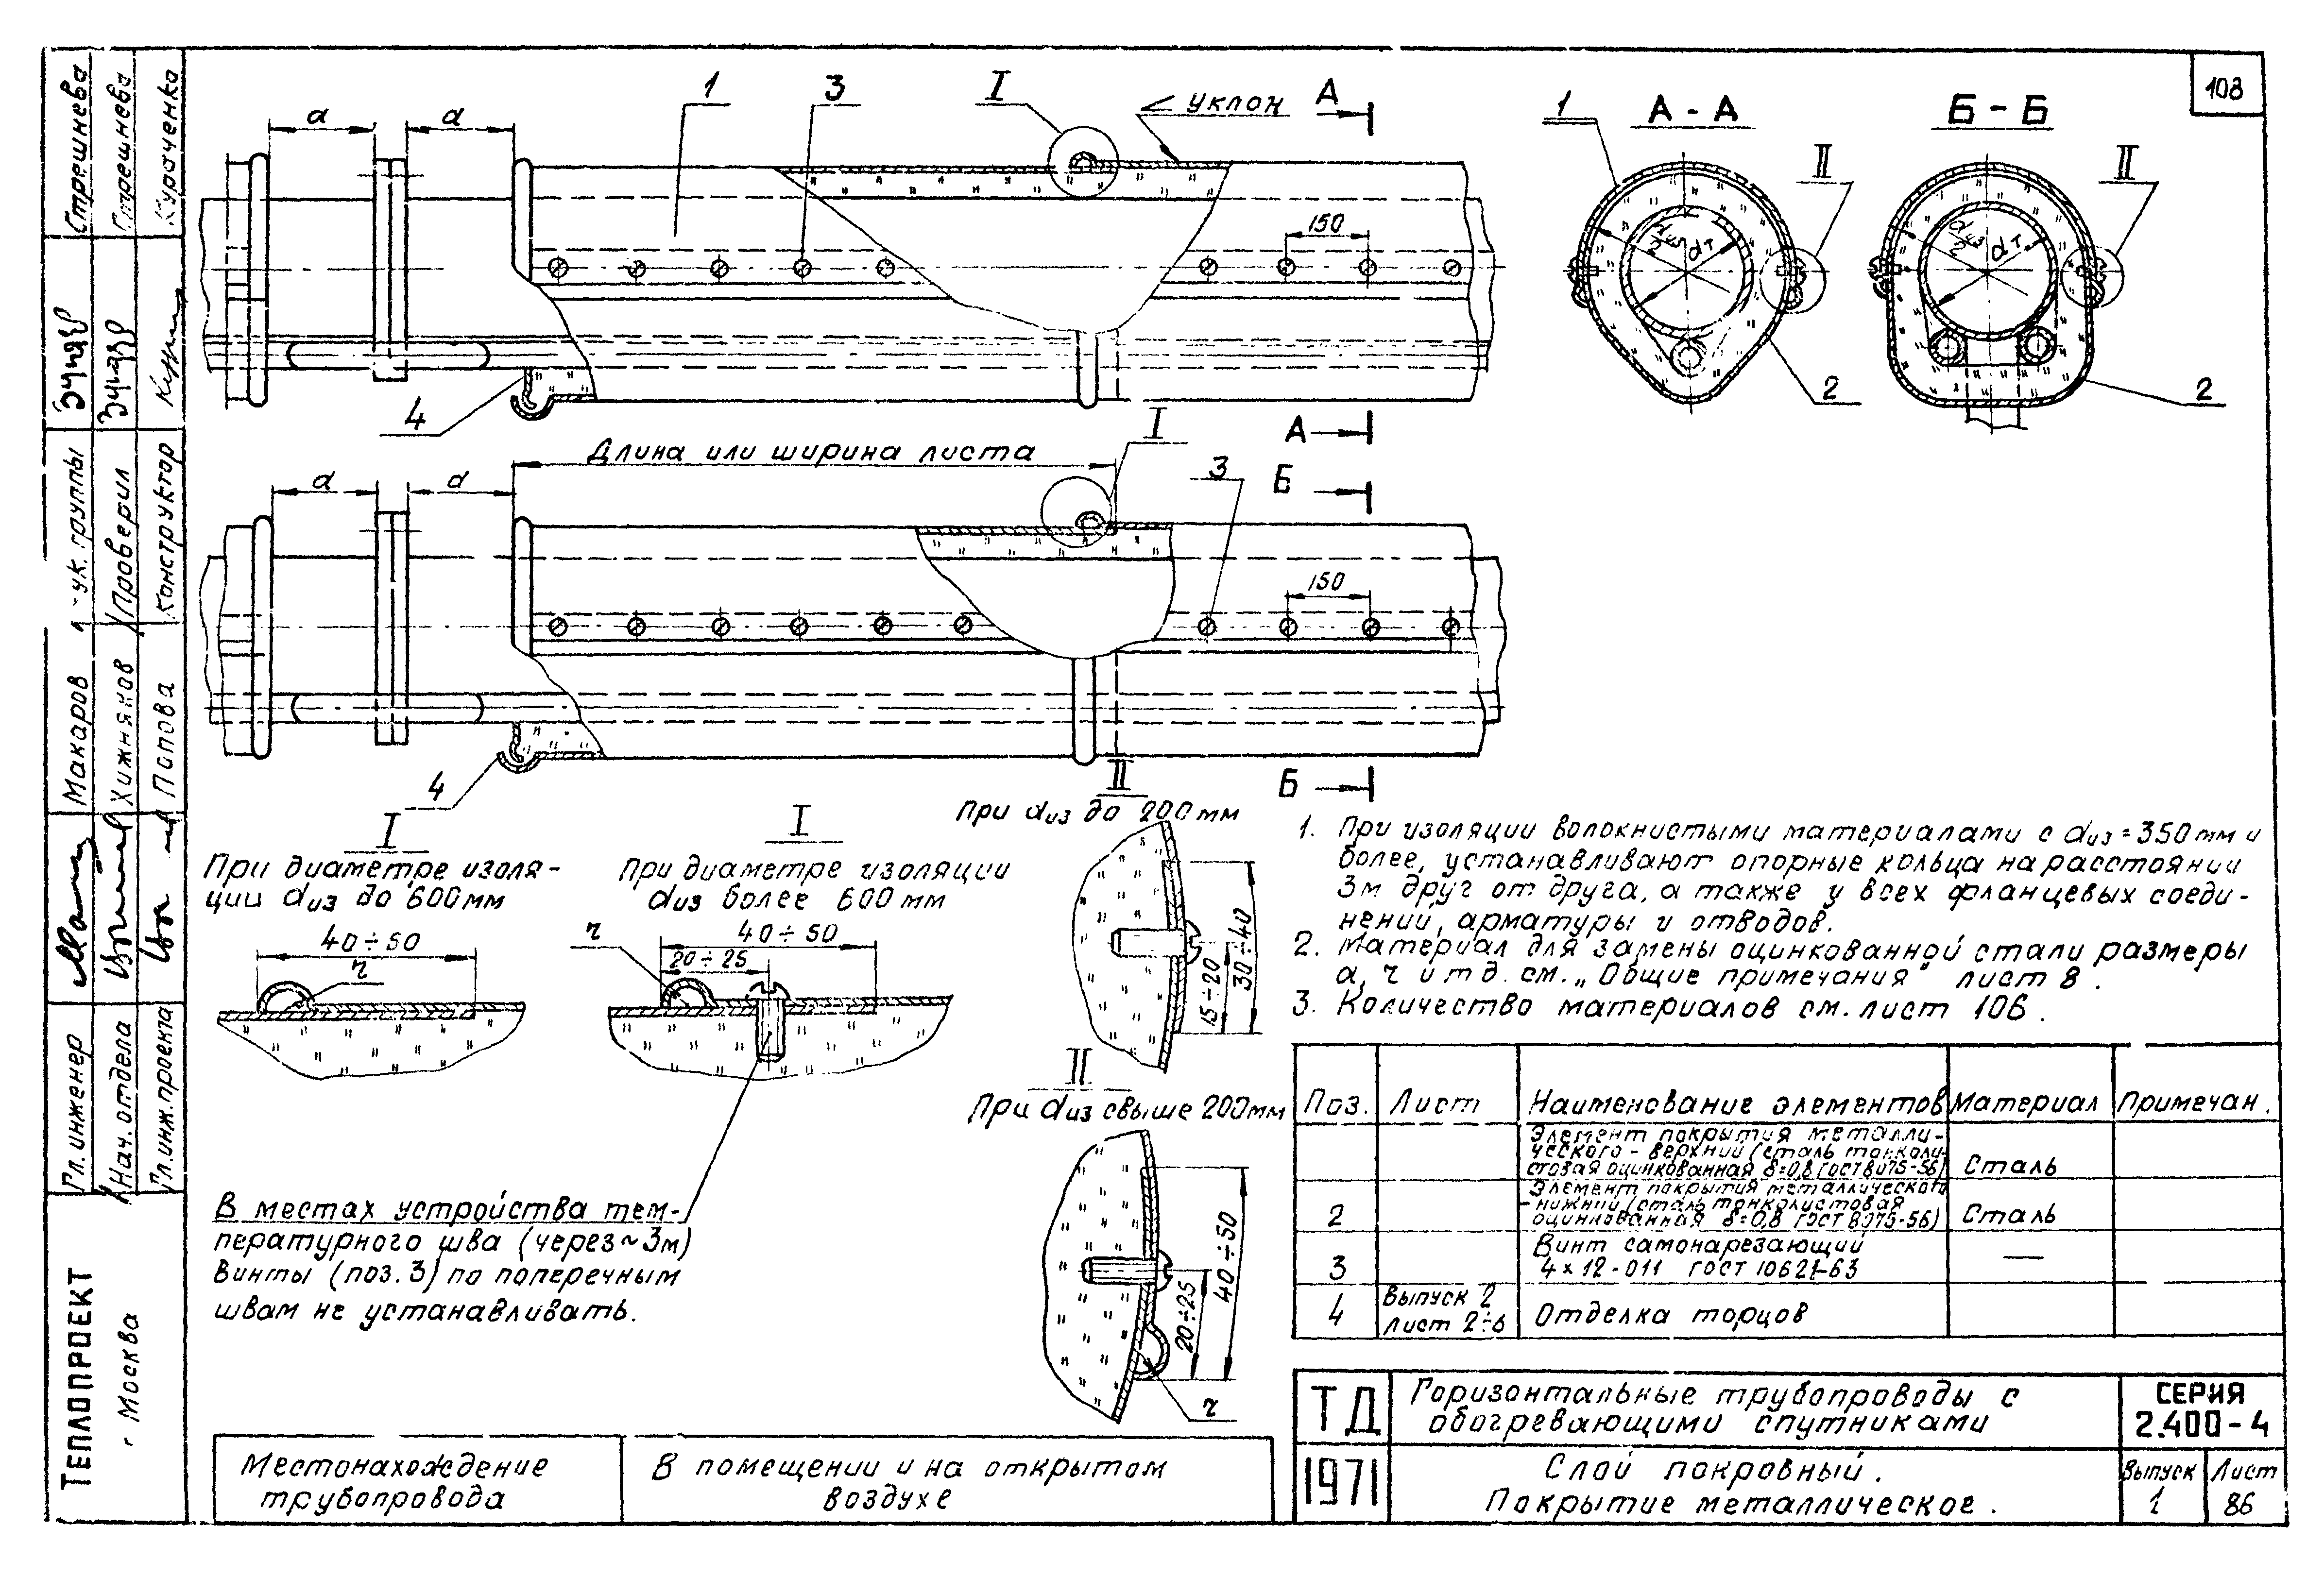 108
a
a
1
3
I
уклон
А
1
А - А
II
Б - Б
II
150
dиз/2
dт
dиз/2
dт
4
2
2
А
I
Длина или ширина листа
3
Б
a
a
150
4
Б
I
При диаметре изоля-
ции dиз до 600мм
40÷50
r
I
При диаметре изоляции
dиз более 600 мм
r
40÷50
20÷25
II
При dиз до 200 мм
30÷40
15÷20
II
При dиз свыше 200мм
40÷50
20÷25
r
В местах устройства тем-
пературного шва (через ~ 3м)
винты (поз. 3) по поперечным
швам не устанавливать.
1. При изоляции волокнистыми материалами с dиз = 350 мм и
более, устанавливают опорные кольца на расстоянии
3м друг от друга, а также у всех фланцевых соеди-
нений, арматуры и отводов.
2. Материал для замены оцинкованной стали размеры
a, r и т д. см. „Общие примечания" лист 8.
3. Количество материалов см. лист 106.
Поз. Лист Наименование элементов Материал Примечан.
Элемент покрытия металли-
ческого - верхний (сталь тонколи-
стовая оцинкованная δ=0,8 ГОСТ 8075-56) Сталь
Элемент покрытия металлического
- нижний (сталь тонколистовая
2 оцинкованная δ=0,8 ГОСТ 8075-56) Сталь
Винт самонарезающий
3 4×12-011 ГОСТ 10621-63 —
4 Выпуск 2 Отделка торцов
Лист 2÷6
ТД
1971
Горизонтальные трубопроводы с
обогревающими спутниками
Слой покровный.
Покрытие металлическое.
СЕРИЯ
2.400-4
Выпуск Лист
1 86
Местонахождение
трубопровода
В помещении и на открытом
воздухе
ТЕПЛОПРОЕКТ
г Москва
Гл. инженер
Макаров
ук. группы
Стрешнева
Нач. отдела
Хижняков
Проверил
Стрешнева
Гл. инж. проекта
Попова
Конструктор
Курочченко